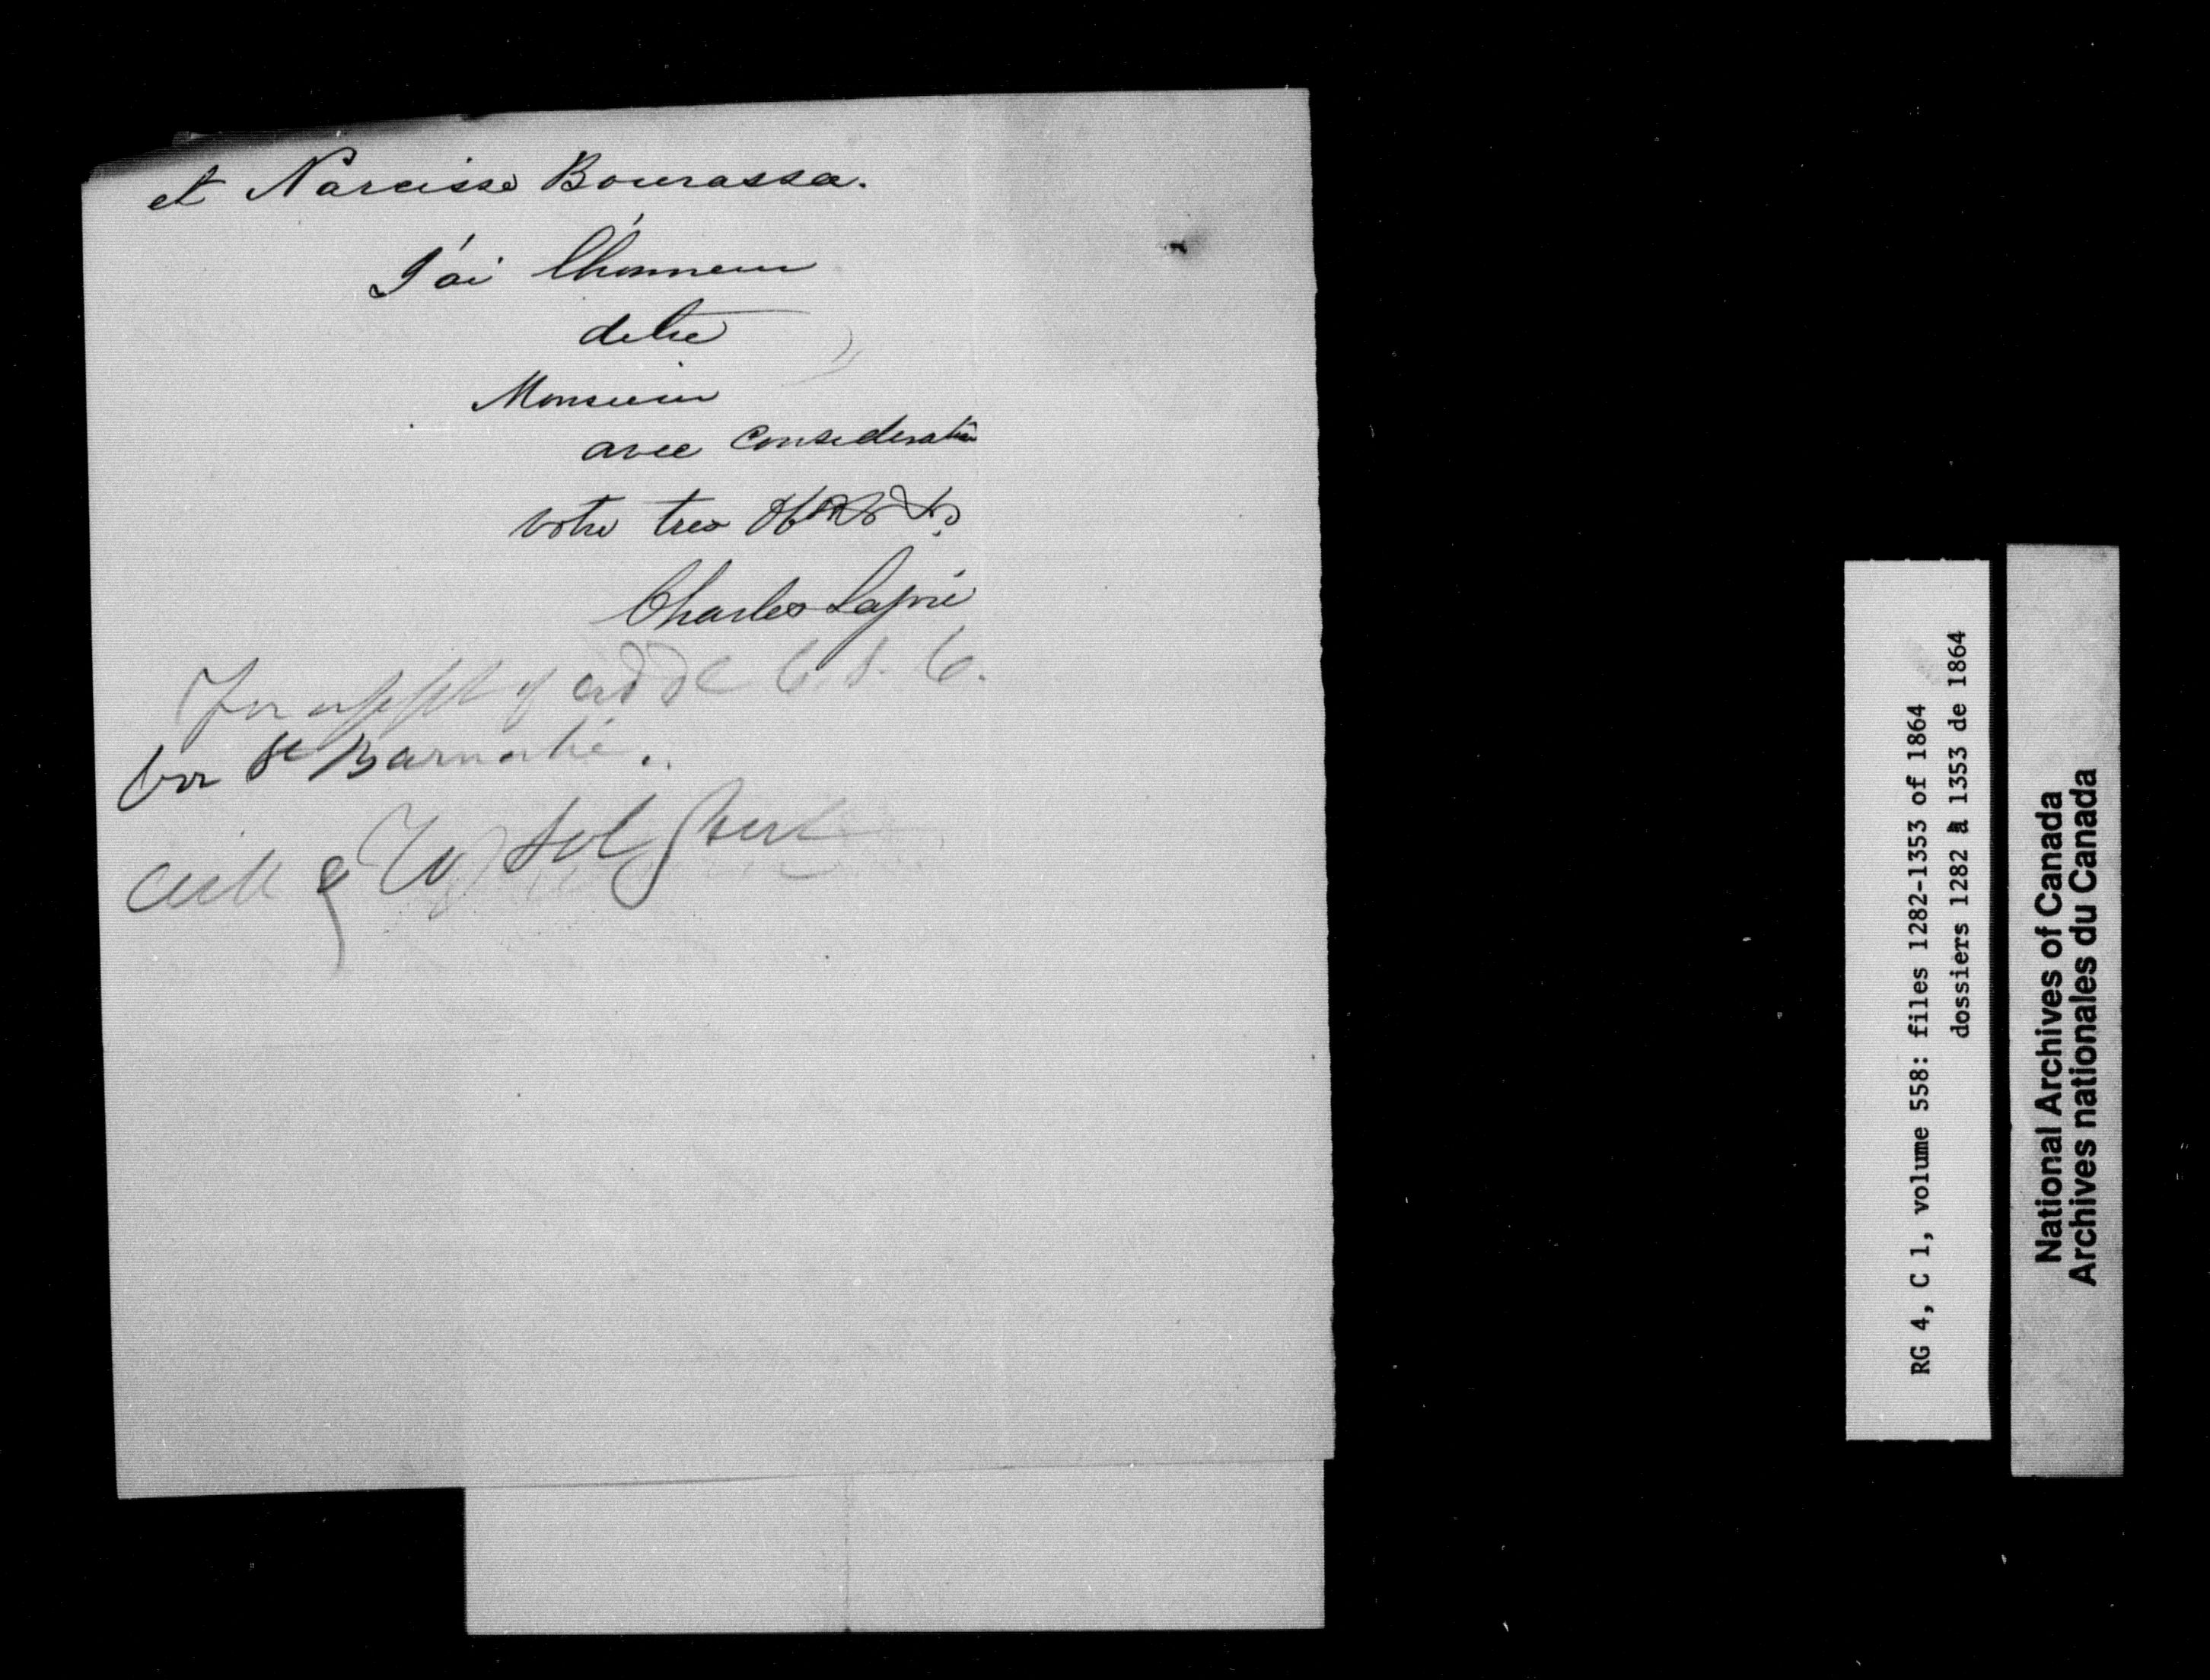 et Narcisse Bourassa.
J'ai l'honneur
detre
Monsieur
avec Consideration
votre tres
Charles Lapré
For appt of add C. S. C.
for St Barnabé.
& Sol
RG 4, C 1, volume 558: files 1282-1353 of 1864
dossiers 1282 à 1353 de 1864
National Archives of Canada
Archives nationales du Canada